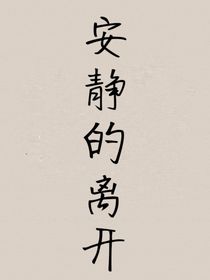 安静的离开